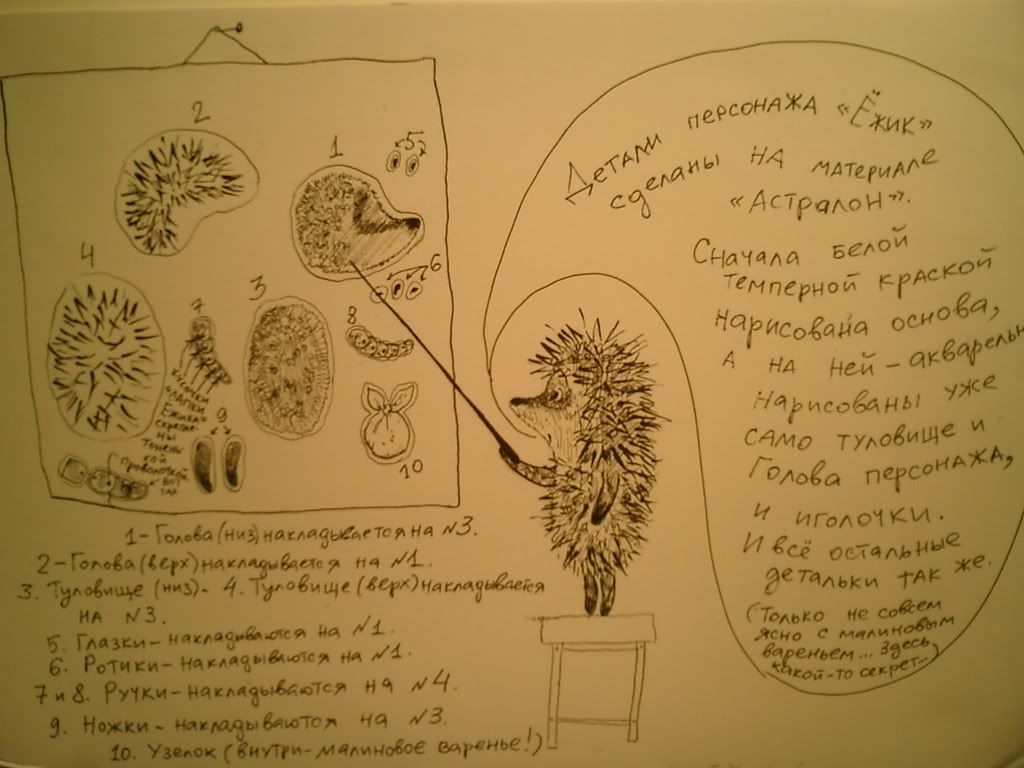 2
1
5
6
4
7
3
8
9
10
Кисти
и лапки
Ёжика
скрепле-
ны
тонень
кой
проволокой.
вот
так
1-Голова (низ) накладывается на №3.
2-Голова (верх) накладывается на №1.
3. Туловище (низ)- 4. Туловище (верх) накладывается
на №3.
5. Глазки-накладываются на №1.
6. Ротики-накладываются на №1.
7 и 8. Ручки-накладываются на №4.
9. Ножки-накладываются на №3.
10. Узелок (внутри-малиновое варенье!)
Детали персонажа «Ёжик»
сделаны на материале
«Астралон».
Сначала белой
темперной краской
нарисована основа,
а на ней-акварелью
нарисованы уже
само туловище и
Голова персонажа,
и иголочки.
И всё остальные
детальки так же.
(Только не совсем
ясно с малиновым
вареньем... Здесь
какой-то секрет...)